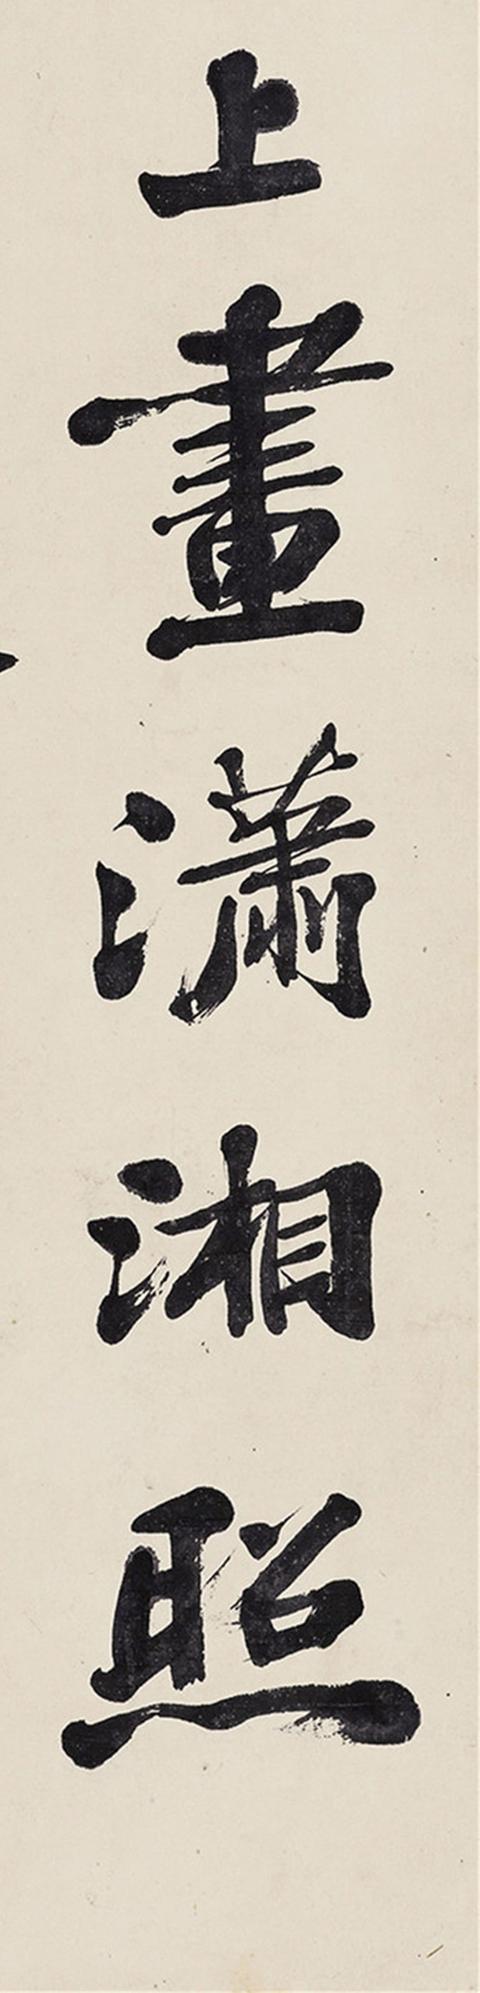 上畫瀟湘照